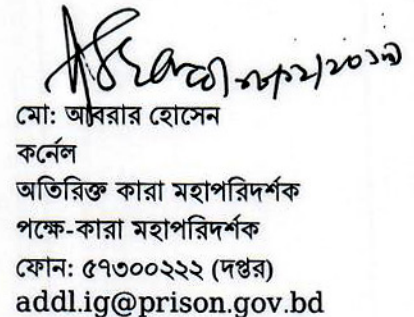 মো: আবরার হোসেন
কর্নেল
অতিরিক্ত কারা মহাপরিদর্শক
পক্ষে-কারা মহাপরিদর্শক
ফোন: ৫৭৩০০২২২ (দপ্তর)
addl.ig@prison.gov.bd